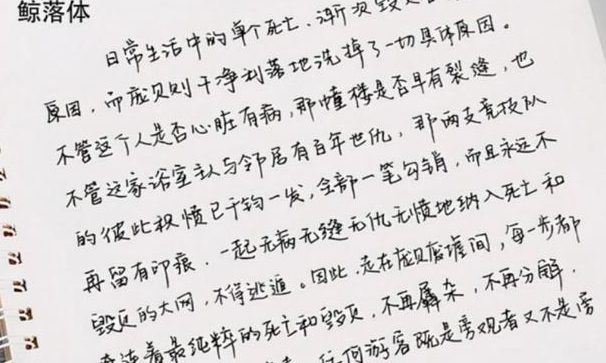 鲸落体
日常生活中的单个死亡、渐次毁
原因，而庞贝则干净利落地洗掉了一切具体原因。
不管这个人是否心脏有病，那幢楼是否早有裂缝，也
不管这家浴室主人与邻居有百年世仇，那两支竞技队
的彼此积愤已千钧一发，全部一笔勾销，而且永远不
再留有印痕，一起无病无缝无仇无愤地纳入死亡和
毁灭的大网，不得逃遁。因此，走在庞贝废墟间，每一步都
着最纯粹的死亡和毁灭，不再羼杂，不再分解，
任何游客既是旁观者又不是旁